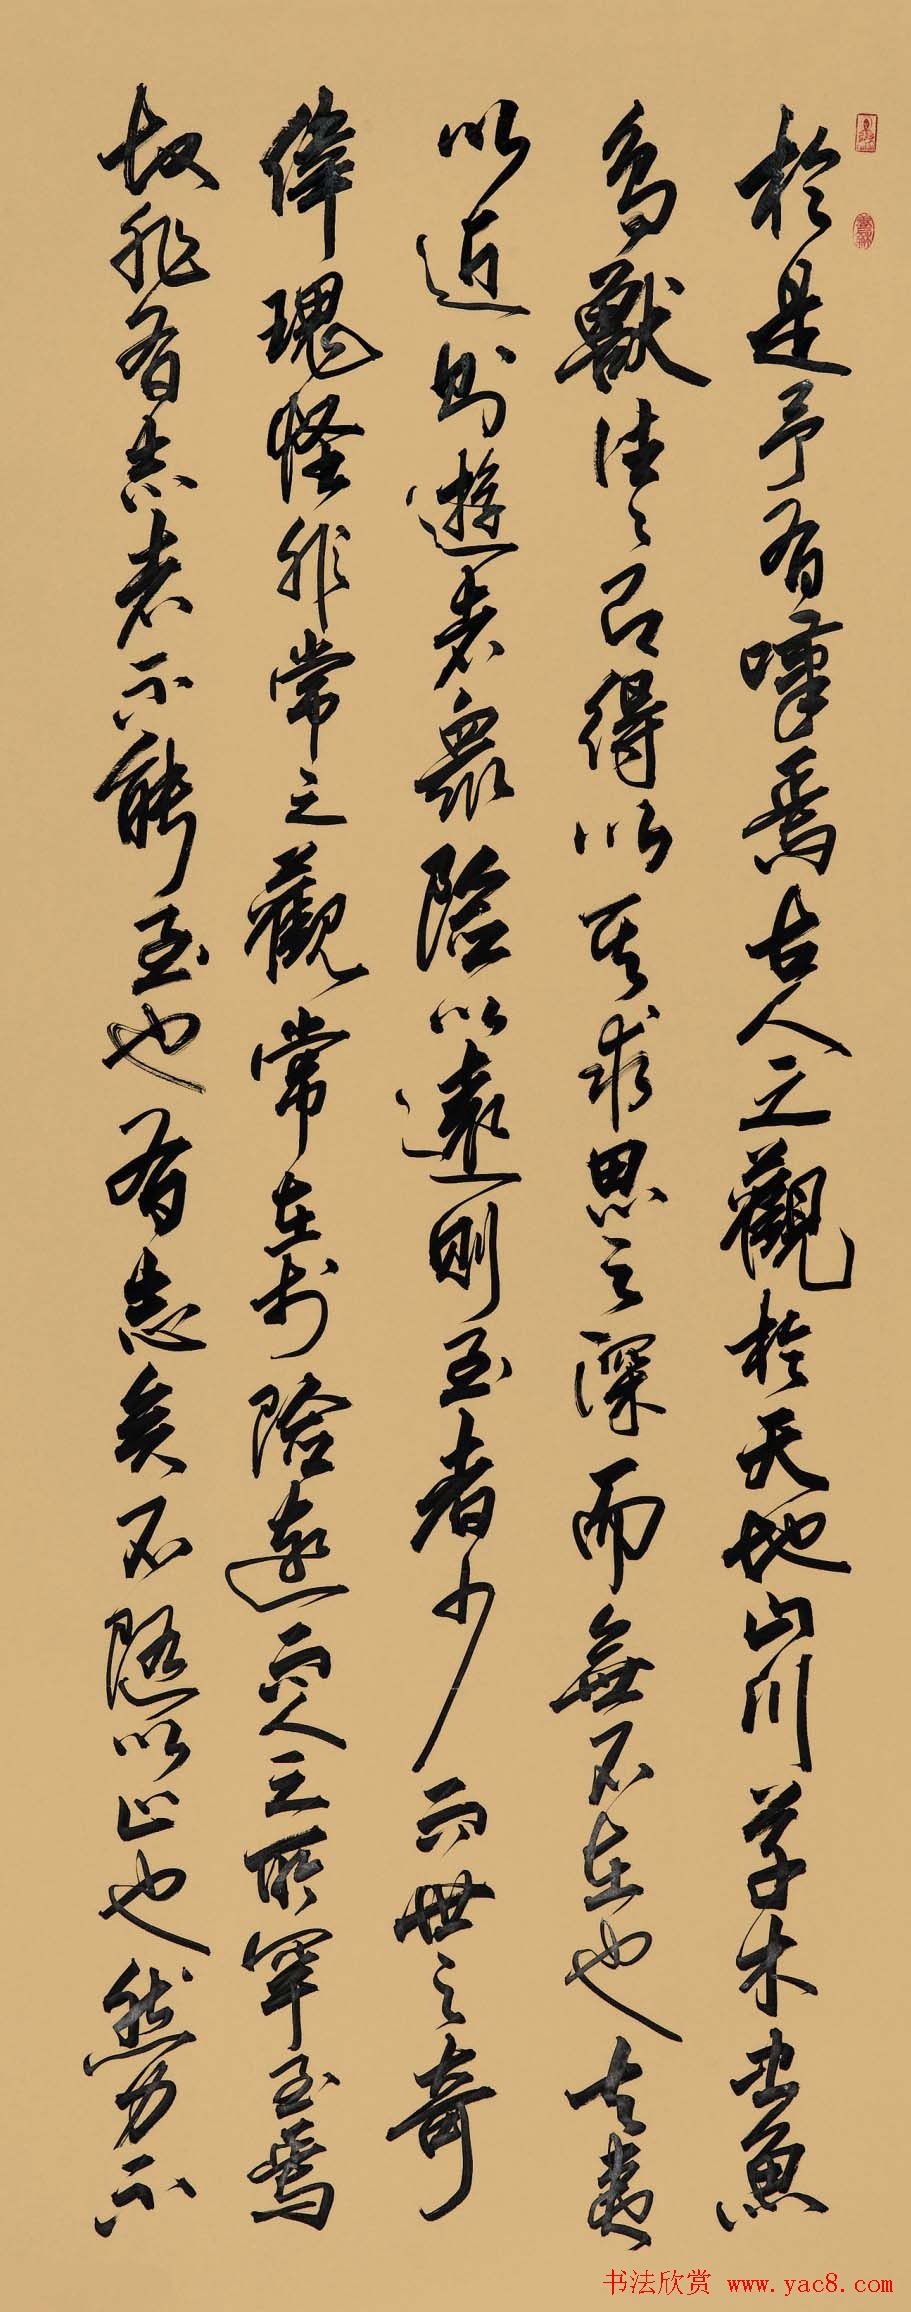 於是予有嘆焉古人之觀於天地山川草木虫魚
鳥獸往々有得以其求思之深而無不在也夫夷
以近則遊者眾險以遠則至者少而世之奇
偉瑰怪非常之觀常在於險遠而人之所罕至焉
故非有志者不能至也有志矣不隨以止也然力不
书法欣赏 www.yac8.com